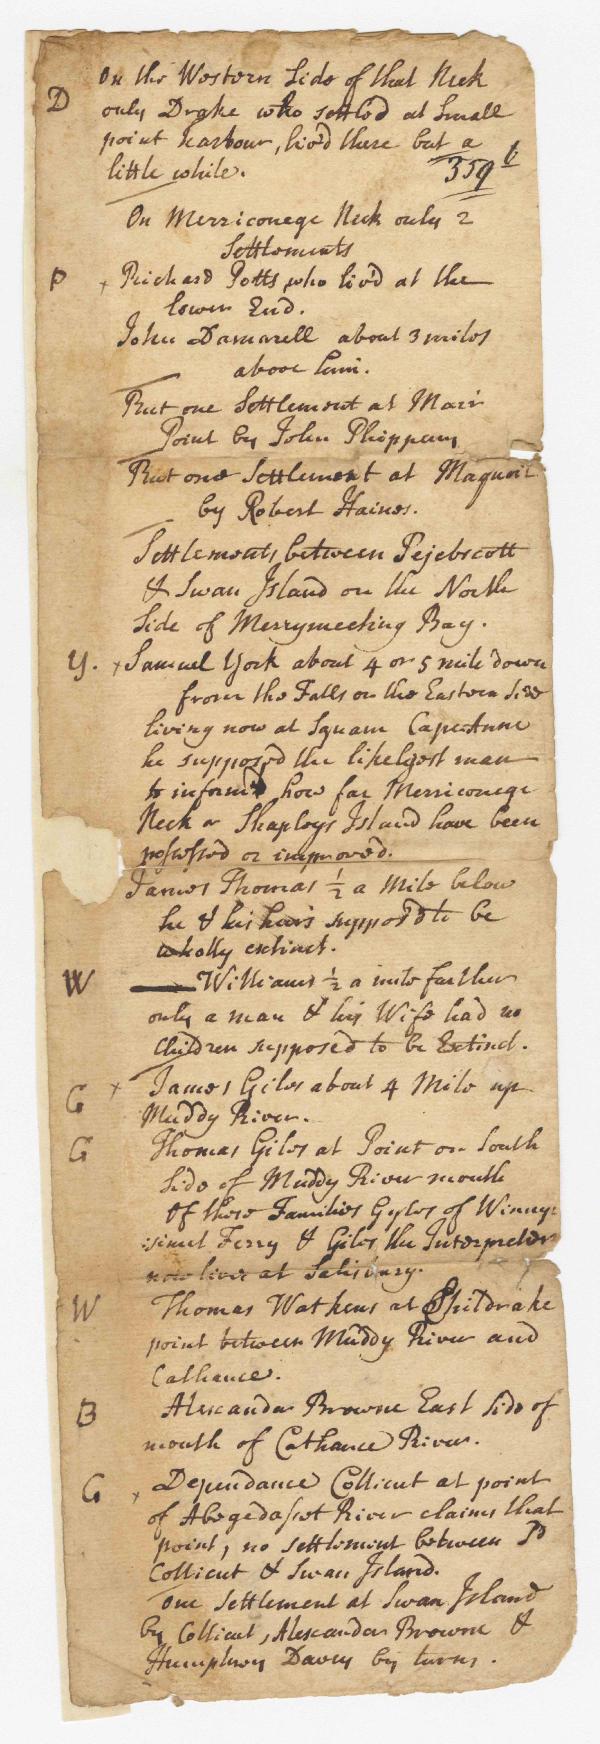 On the Western Side of that Neck
D only Drake who settled at Small
point harbour, liv'd there but a
little while. 359 b
On Merriconege Neck only 2
Settlements
P x Richard Potts who liv'd at the
lower End.
John Damarell about 3 miles
above him.
But one Settlement at Mair
Point by John Phippany
But one Settlement at Maquoit
by Robert Haines.
Settlements between Pejebscott
& Swan Island on the North
Side of Merrymeeting Bay.
Y. x Samuel York about 4 or 5 mile down
from the Falls on the Eastern Side
living now at Squam Cape Anne
he suppos'd the likelyest man
to inform how far Merriconege
Neck or Shapleys Island have been
possessed or improved.
James Thomas ½ a Mile below
he & his heirs suppos'd to be
wholly extinct.
W Williams ½ a mile further
only a man & his Wife had no
Children supposed to be Extinct.
G x James Giles about 4 Mile up
Muddy River.
G Thomas Giles at Point on South
Side of Muddy River mouth
Of these Families Gyles of Winny-
isimet Ferry & Giles the Interpreter
now lives at Salisbury.
W Thomas Watkens at Spildrake
point between Muddy River and
Cathance.
B Alexander Browne East Side of
mouth of Cathance River.
C x Dependance Collicut at point
of Abegedasset River claims that
point, no settlement between sd
Collicut & Swan Island.
One Settlement at Swan Island
by Collicut, Alexander Browne &
Humphrey Davey by turns.